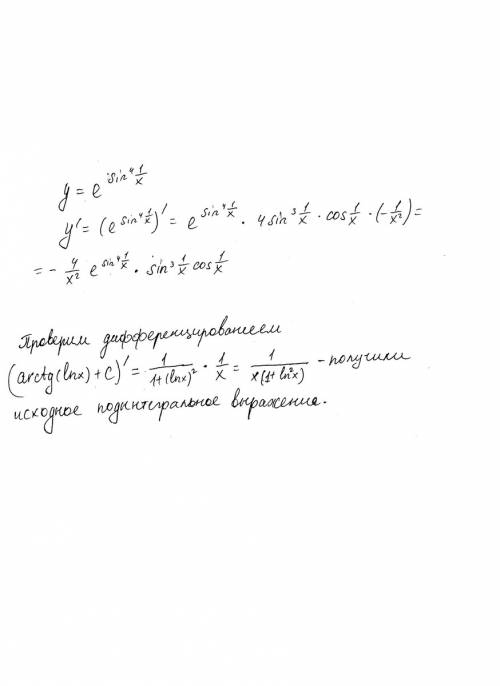 y = e^{sin^4 1/x}
y' = (e^{sin^4 1/x})' = e^{sin^4 1/x} · 4 sin^3 1/x · cos 1/x · (-1/x²) =
= - 4/x² e^{sin^4 1/x} · sin^3 1/x cos 1/x
Проверим дифференцированием
(arctg(lnx)+C)' = 1/(1+(lnx)²) · 1/x = 1/(x(1+ln²x)) - получили
исходное подынтегральное выражение.